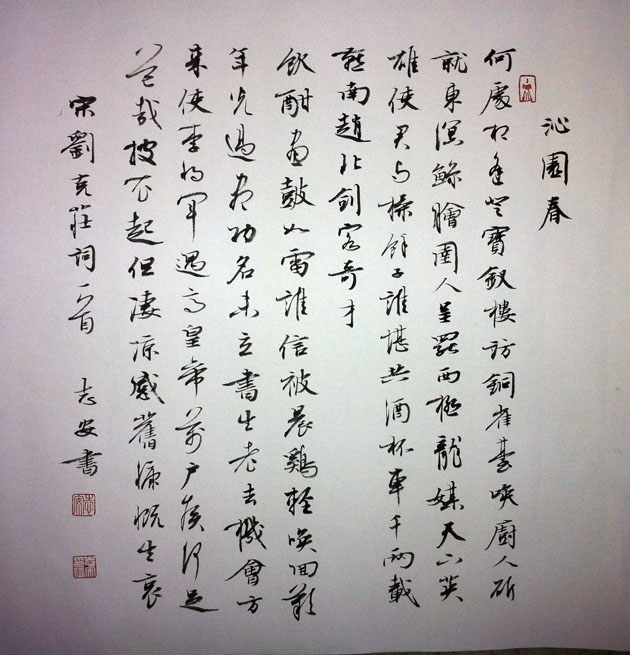 沁園春
何處相逢登寶釵樓訪銅雀臺喚廚人斫
就東溟鯨膾圉人呈罷西極龍媒天下英
雄使君与操餘子誰堪共酒杯車千兩載
燕南趙北劍客奇才
飲酣畫鼓如雷誰信被晨鷄輕喚回歎
年光過盡功名未立書生老去機會方
來使李將軍遇高皇帝萬戶侯何足
道哉披衣起但凄涼感舊慷慨生哀
宋劉克莊詞一首 志安書